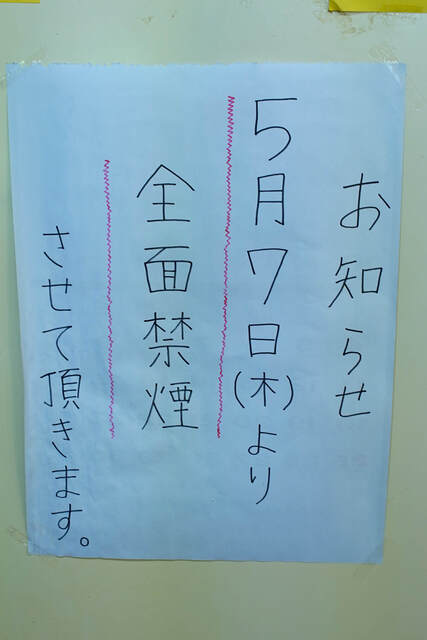 お知らせ
5月7日(木)より
全面禁煙
させて頂きます。